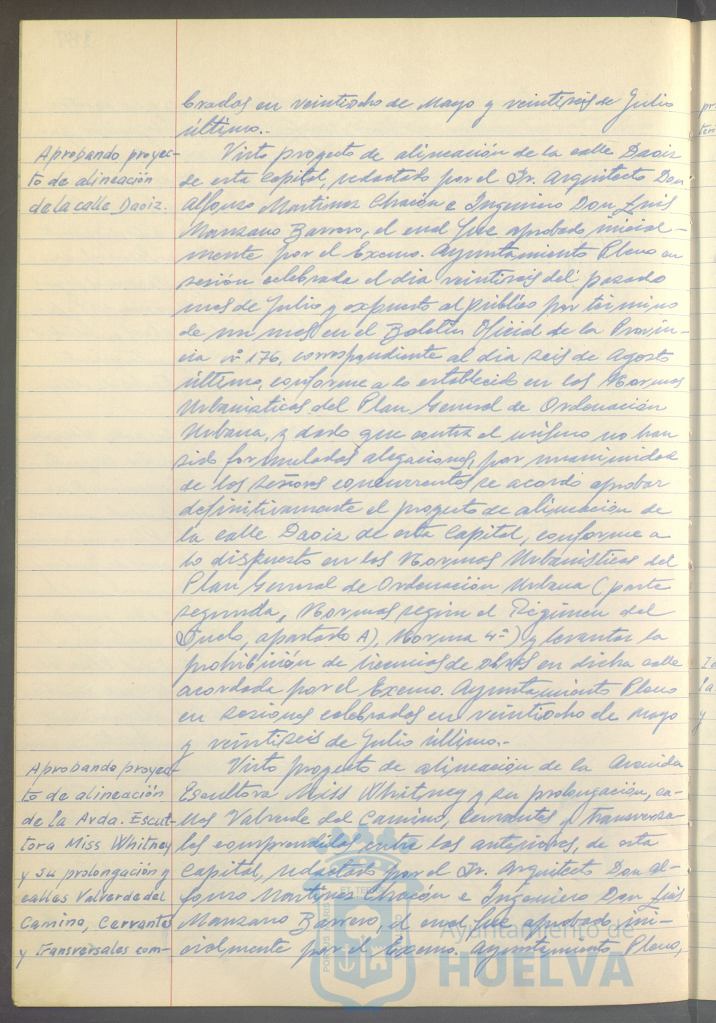 brados en veintiocho de Mayo y veintiseis de Julio
último.-
Aprobando proyec-
to de alineación
de la calle Daoiz.
Visto proyecto de alineación de la calle Daoiz
de esta Capital, redactado por el Sr. Arquitecto Don
Alfonso Martinez Chacón e Ingeniero Don Luis
Manzano Barrero, el cual fue aprobado inicial-
mente por el Excmo. Ayuntamiento Pleno en
sesión celebrada el dia veintiseis del pasado
mes de Julio y expuesto al público por término
de un mes en el Boletin Oficial de la Provin-
cia nº 176, correspondiente al dia seis de Agosto
último, conforme a lo establecido en las Normas
Urbanisticas del Plan General de Ordenación
Urbana, y dado que contra el mismo no han
sido formuladas alegaciones, por unanimidad
de los señores concurrentes se acordó aprobar
definitivamente el proyecto de alineación de
la calle Daoiz de esta Capital, conforme a
lo dispuesto en las Normas Urbanisticas del
Plan General de Ordenación Urbana (parte
segunda, Normas según el Régimen del
Suelo, apartado A), Norma 4ª) y levantar la
prohibición de licencias de obras en dicha calle
acordada por el Excmo. Ayuntamiento Pleno
en sesiones celebradas en veintiocho de Mayo
y veintiseis de Julio último.-
Aprobando proyec-
to de alineación
de la Avda. Escul-
tora Miss Whitney
y su prolongación y
calles Valverde del
Camino, Cervantes
y transversales com-
Visto proyecto de alineación de la Avenida
Escultora Miss Whitney y su prolongación, ca-
lles Valverde del Camino, Cervantes y transversa-
les comprendidas entre las anteriores, de esta
Capital, redactado por el Sr. Arquitecto Don Al-
fonso Martinez Chacón e Ingeniero Don Luis
Manzano Barrero, el cual fue aprobado ini-
cialmente por el Excmo. Ayuntamiento Pleno,
Ayuntamiento de
HUELVA